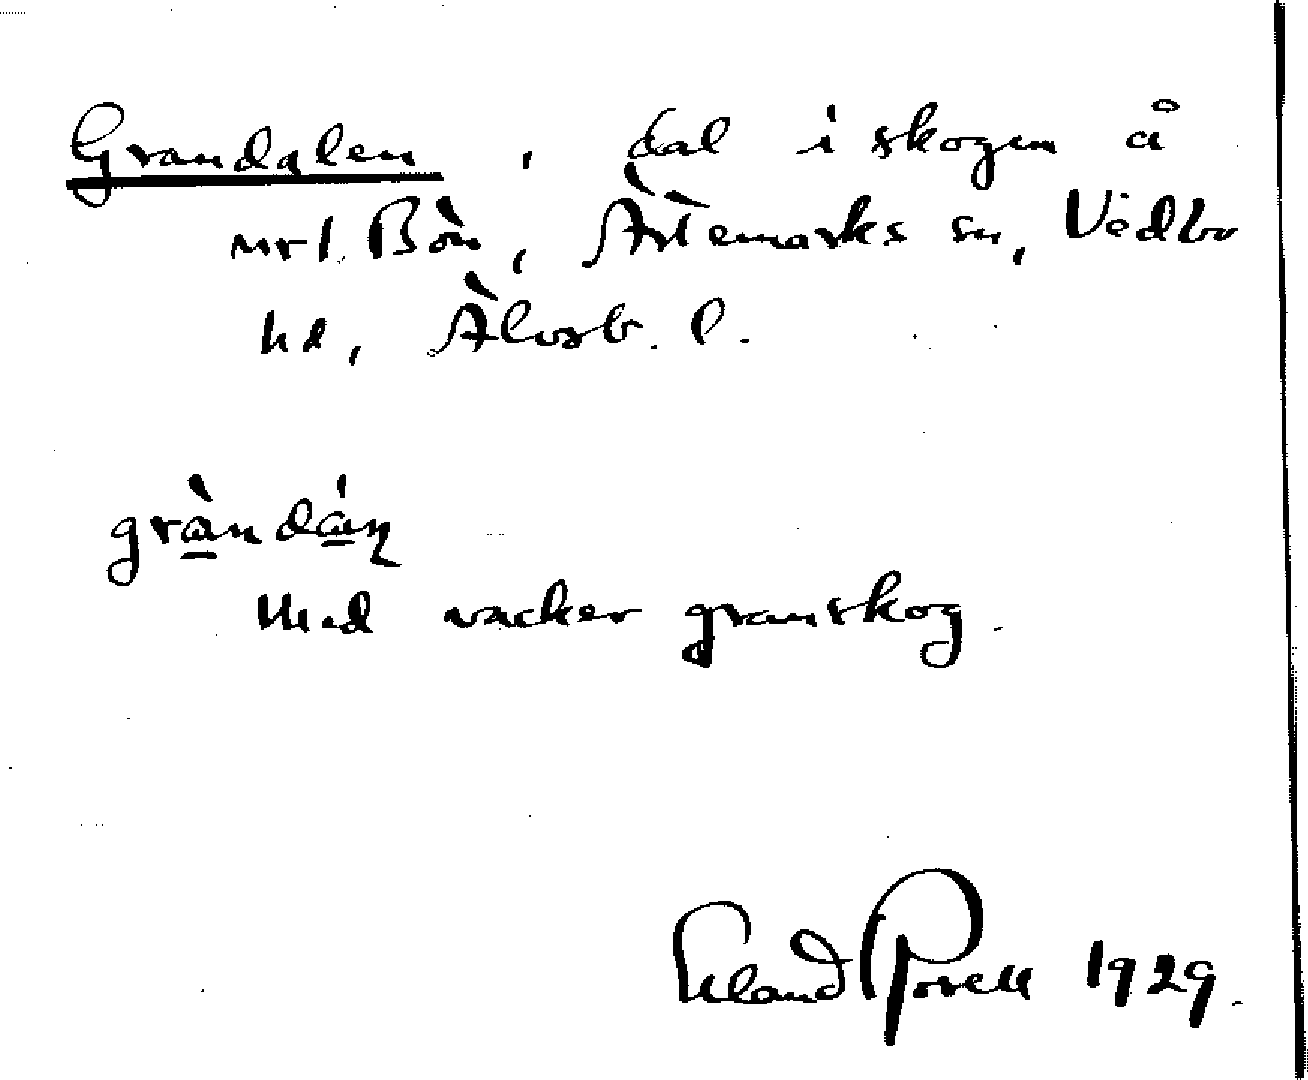 Grandalen, dal i skogen å
nrl. Bön, Ärtemarks sn, Vedbo
hd, Älvsb. l.
gràndáṇ
Med vacker granskog.
Erland Rosell 1929.